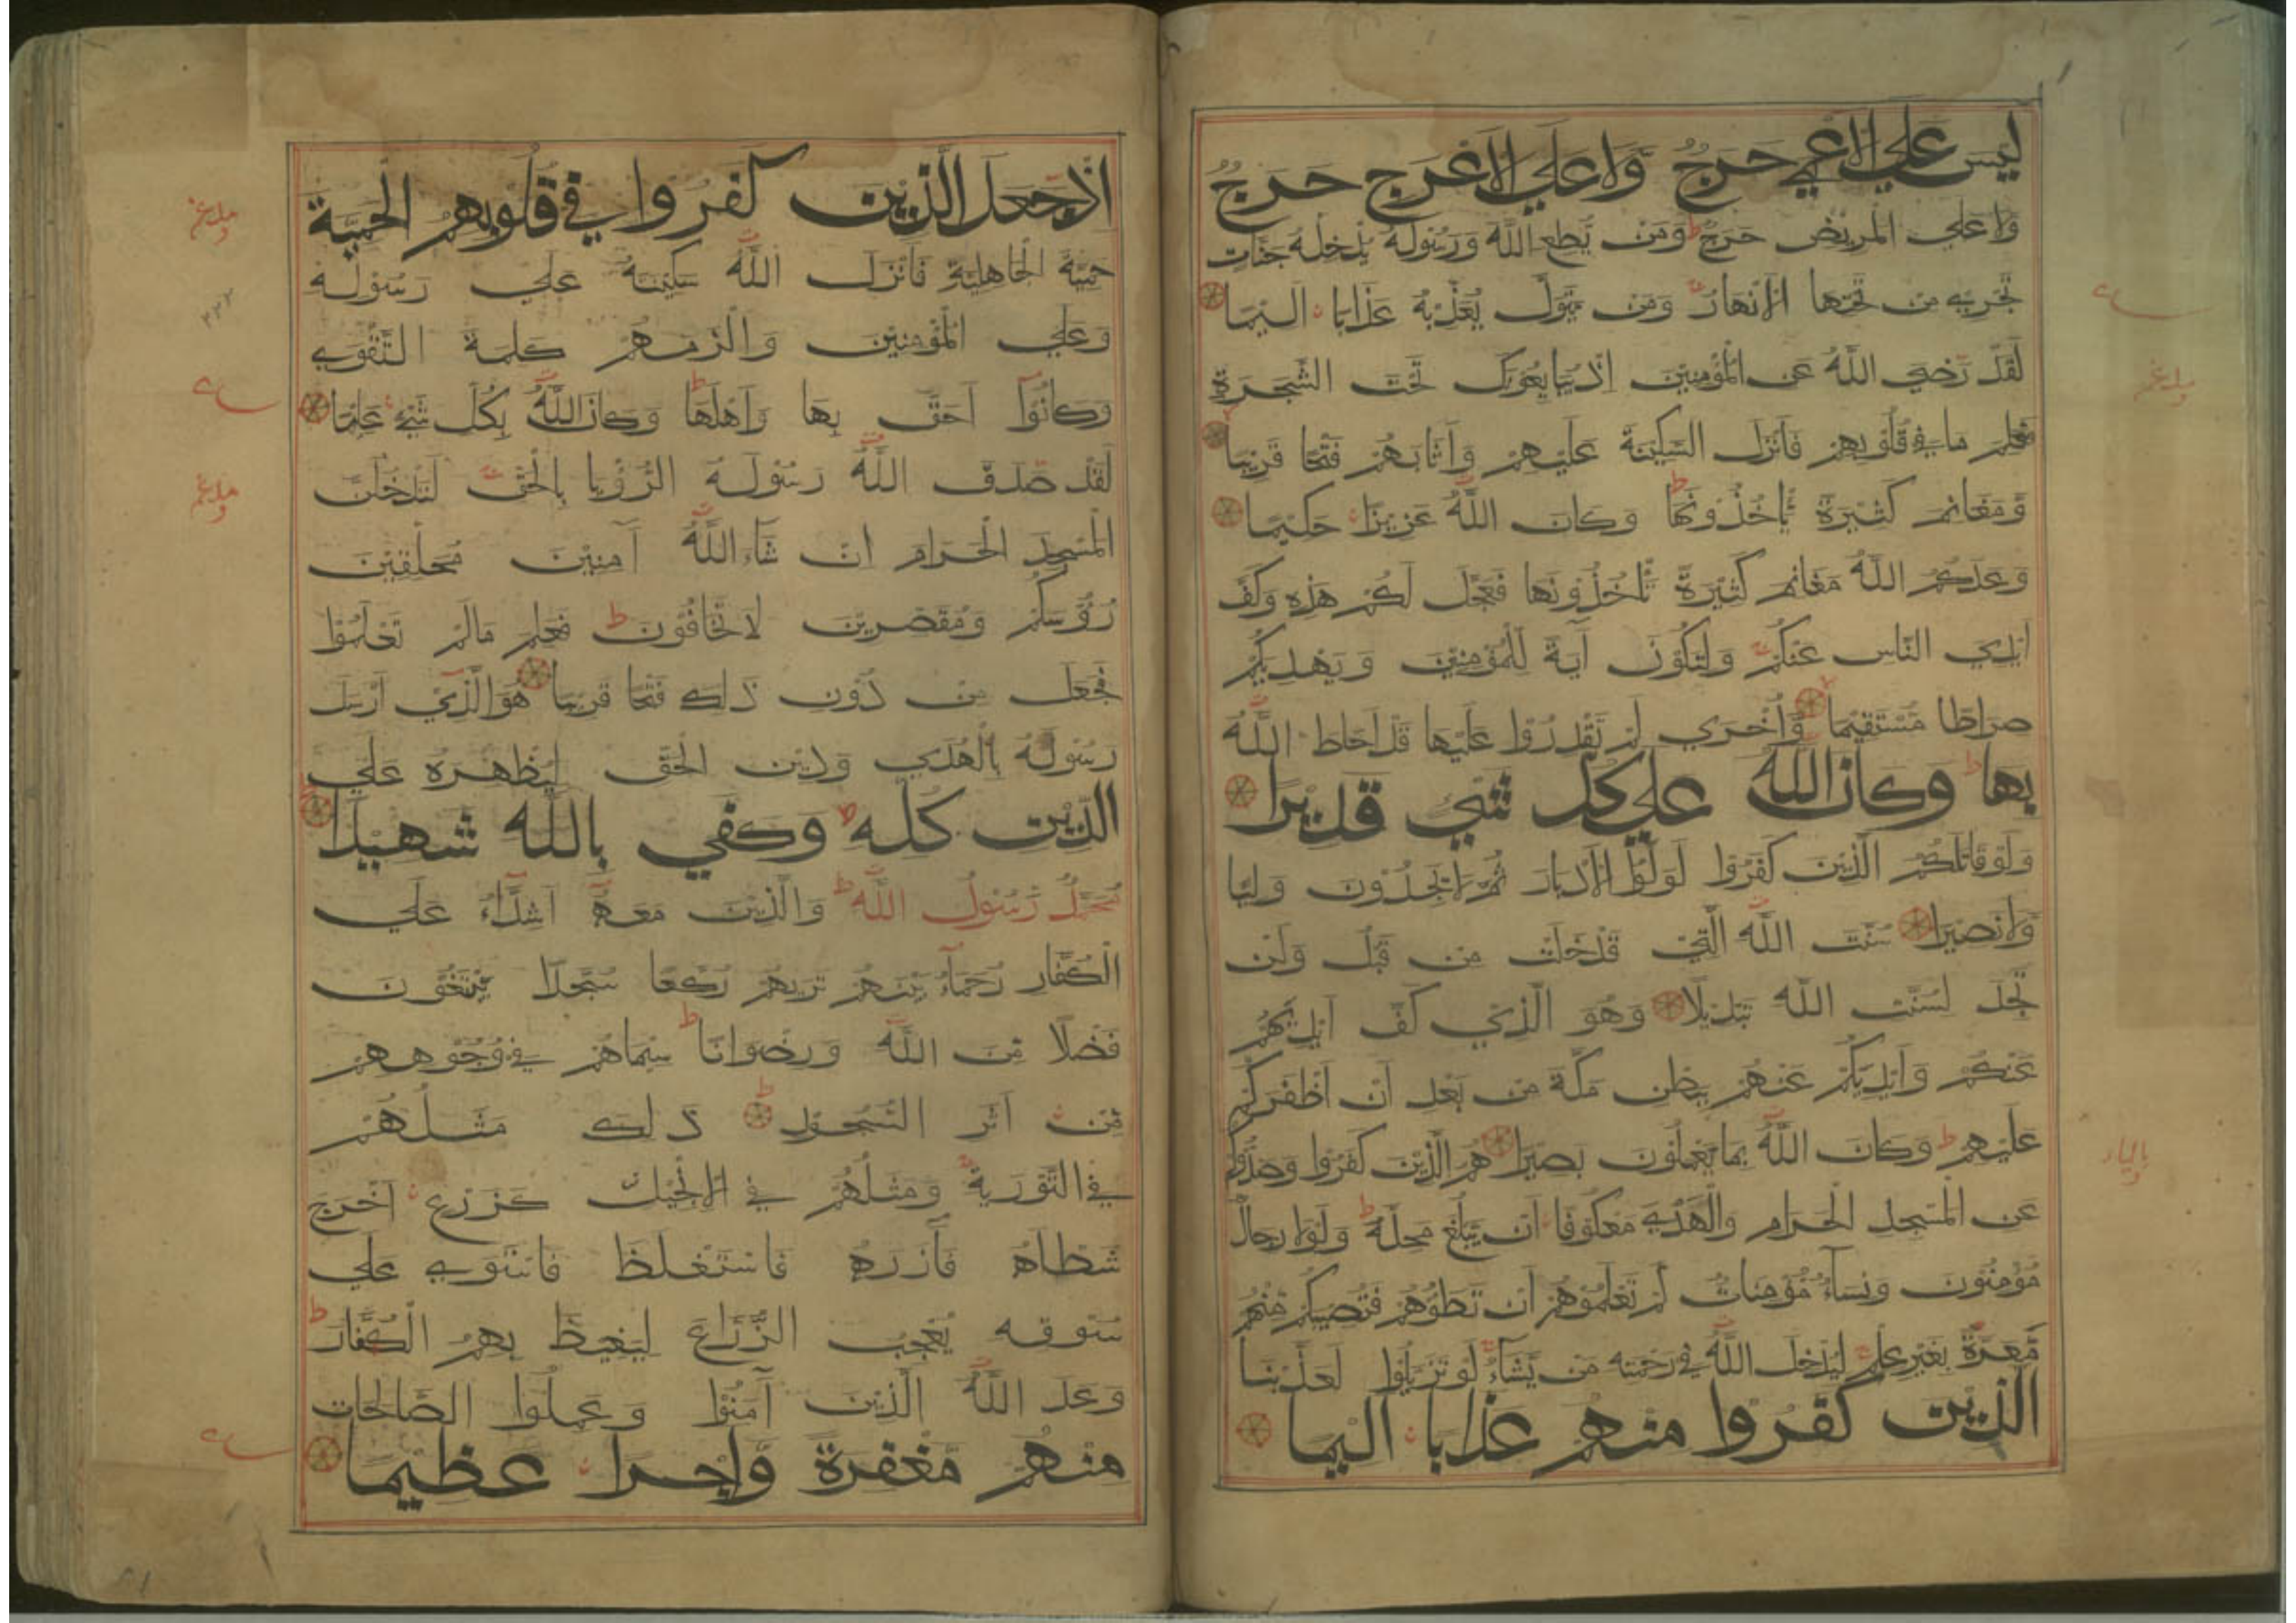 ليس علي الاعمي حرج ولا علي الاعرج حرج
ولا علي المريض حرج ط ومن يطع الله ورسوله يدخله جنات
تجري من تحتها الانهار ومن يتول يعذبه عذابا اليما
لقد رضي الله عن المؤمنين اذ يبايعونك تحت الشجرة
فعلم ما في قلوبهم فانزل السكينة عليهم واثابهم فتحا قريبا
ومغانم كثيرة ياخذونها ط وكان الله عزيزا حكيما
وعدكم الله مغانم كثيرة تاخذونها فعجل لكم هذه وكف
ايدي الناس عنكم ولتكون آية للمؤمنين ويهديكم
صراطا مستقيما واخري لم تقدروا عليها قد احاط الله
بها ط وكان الله علي كل شيء قديرا
ولو قاتلكم الذين كفروا لولوا الادبار ثم لا يجدون وليا
ولا نصيرا سنت الله التي قد خلت من قبل ولن
تجد لسنت الله تبديلا وهو الذي كف ايديهم
عنكم وايديكم عنهم ببطن مكة من بعد ان اظفركم
عليهم ط وكان الله بما يعملون بصيرا هم الذين كفروا وصدوكم
عن المسجد الحرام والهدي معكوفا ان يبلغ محله ط ولولا رجال
مؤمنون ونساء مؤمنات لم تعلموهم ان تطؤهم فتصيبكم منهم
معرة بغير علم ليدخل الله في رحمته من يشاء لو تزيلوا لعذبنا
الذين كفروا منهم عذابا اليما
اذ جعل الذين كفروا في قلوبهم الحمية
حمية الجاهلية فانزل الله سكينته علي رسوله
وعلي المؤمنين والزمهم كلمة التقوي
وكانوا احق بها واهلها ط وكان الله بكل شيء عليما
لقد صدق الله رسوله الرؤيا بالحق لتدخلن
المسجد الحرام ان شاء الله آمنين محلقين
رؤسكم ومقصرين لا تخافون ط فعلم مالم تعلموا
فجعل من دون ذلك فتحا قريبا هو الذي ارسل
رسوله بالهدي ودين الحق ليظهره علي
الدين كله ط وكفي بالله شهيدا
محمد رسول الله ط والذين معه اشداء علي
الكفار رحماء بينهم تريهم ركعا سجدا يبتغون
فضلا من الله ورضوانا ط سيماهم في وجوههم
من اثر السجود ط ذلك مثلهم
في التورية ومثلهم في الانجيل كزرع اخرج
شطاه فآزره فاستغلظ فاستوي علي
سوقه يعجب الزراع ليغيظ بهم الكفار ط
وعد الله الذين آمنوا وعملوا الصالحات
منهم مغفرة واجرا عظيما